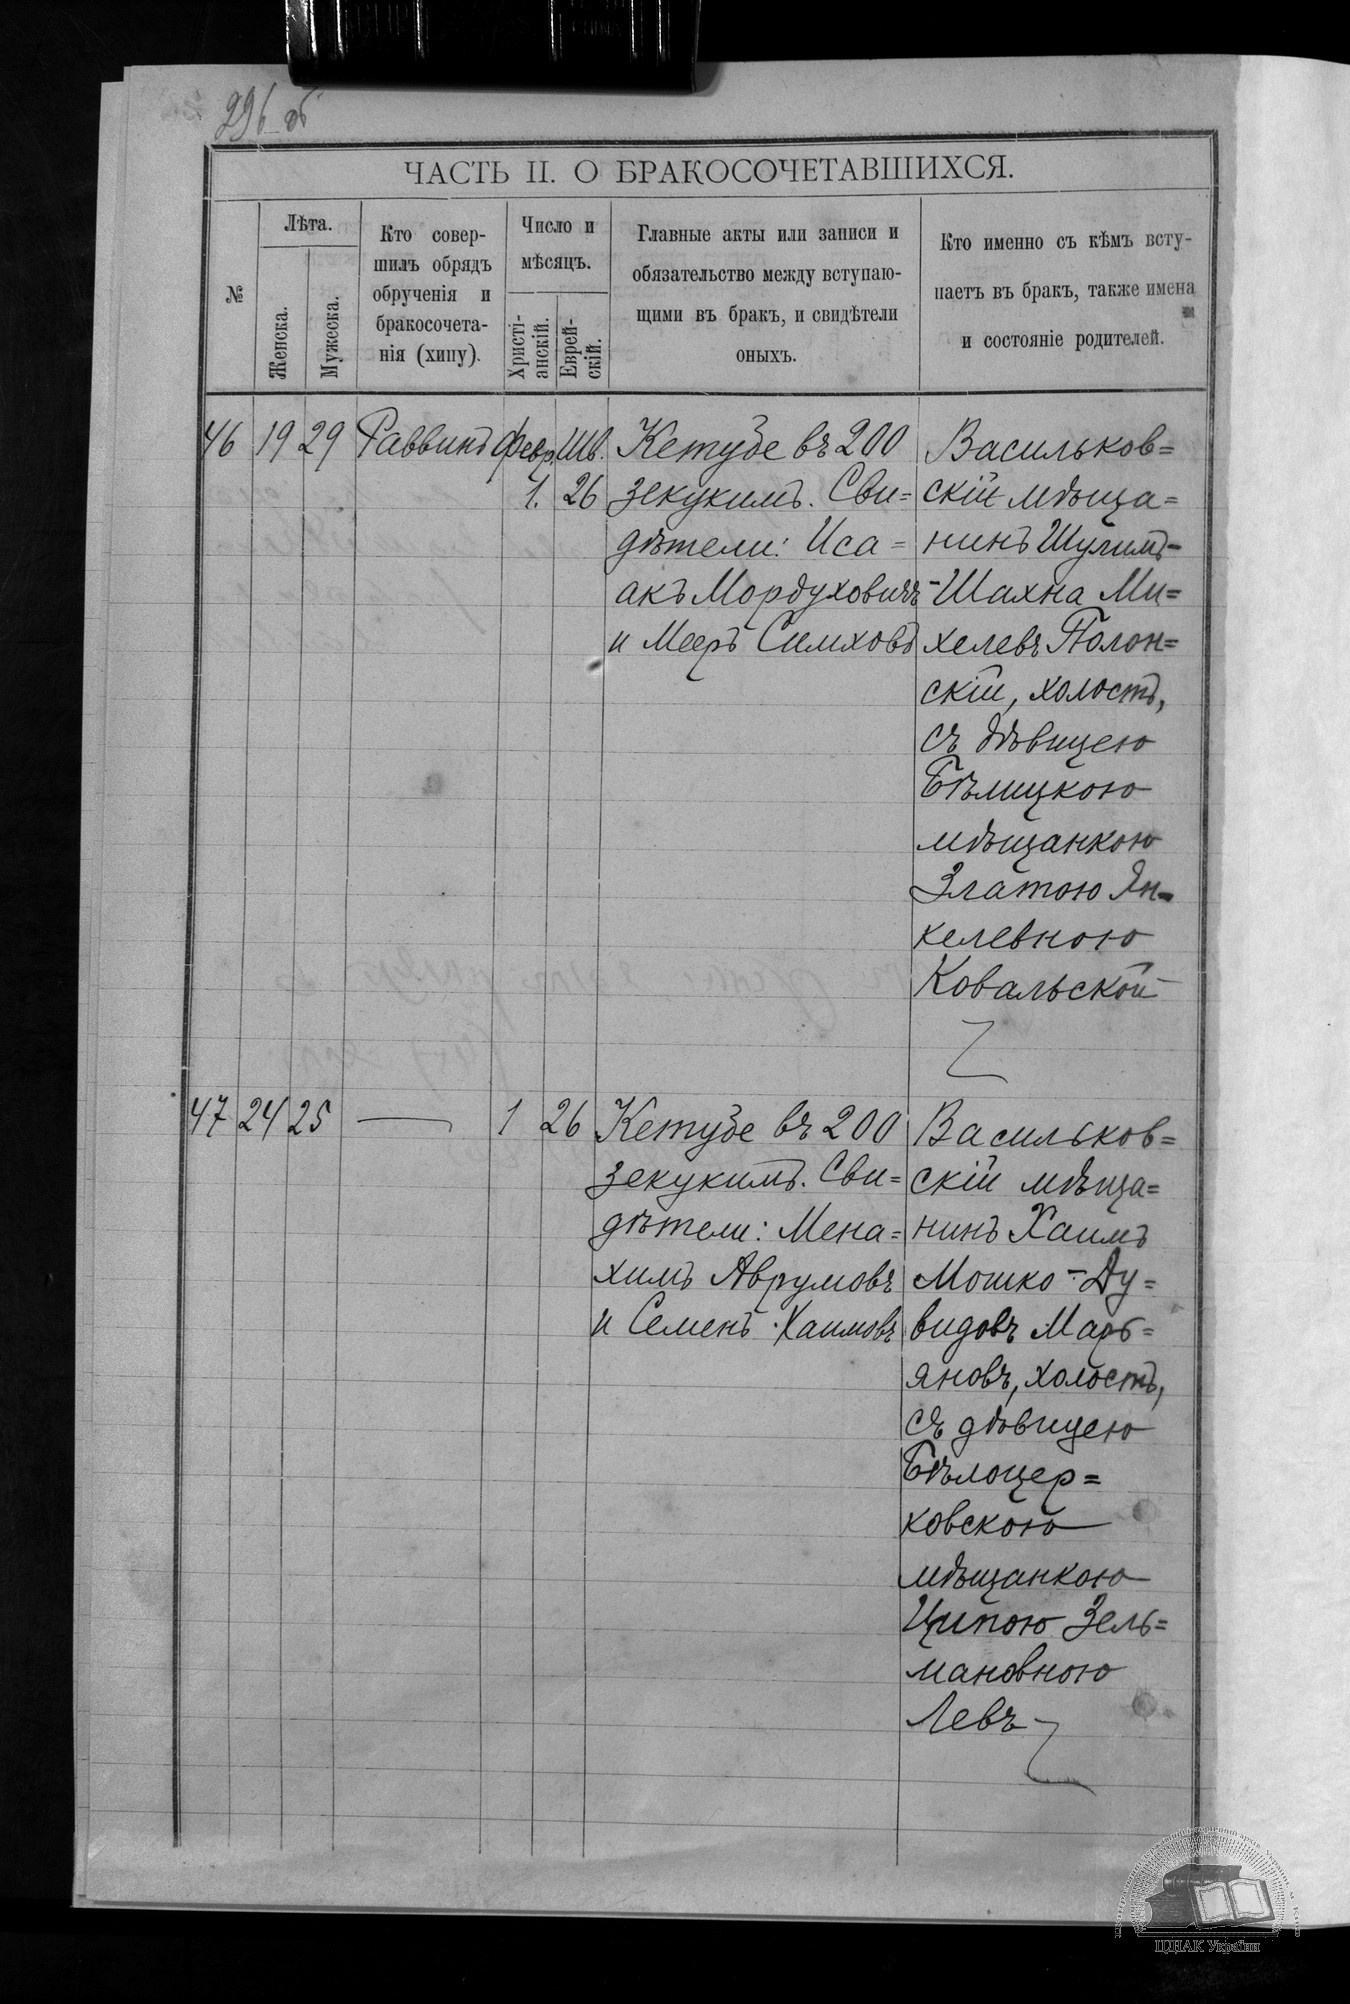 296 об
ЧАСТЬ II. О БРАКОСОЧЕТАВШИХСЯ.
№
Лѣта.
Женска.
Мужеска.
Кто совер-
шилъ обрядъ
обрученія и
бракосочета-
нія (хипу).
Число и
мѣсяцъ.
Христі-
анскій.
Еврей-
скій.
Главные акты или записи и
обязательство между вступаю-
щими въ брак, и свидѣтели
оныхъ.
Кто именно съ кѣмъ всту-
паетъ въ брак, также имена
и состояніе родителей.
46 19 29 Раввинъ Февр. Шв.
1. 26
Кетубе въ 200
зекукимъ. Сви=
дѣтели: Иса=
акъ Мордуховичъ
и Мееръ Симховъ
Васильков=
скій мѣща=
нинъ Шулимъ-
-Шахна Ми=
хелевъ Полон=
скій, холостъ,
съ дѣвицею
Бѣлицкою
мѣщанкою
Златою Ян=
келевною
Ковальской
47 24 25 — 1 26
Кетубе въ 200
зекукимъ. Сви=
дѣтели: Мена=
химъ Аврумовъ
и Семенъ Хаимовъ
Васильков=
скій мѣща=
нинъ Хаимъ
Мошко-Ду=
видовъ Марь=
яновъ, холостъ,
съ дѣвицею
Бѣлоцер=
ковскою
мѣщанкою
Ципою Зель=
мановною
Левъ
ЦДІАК України